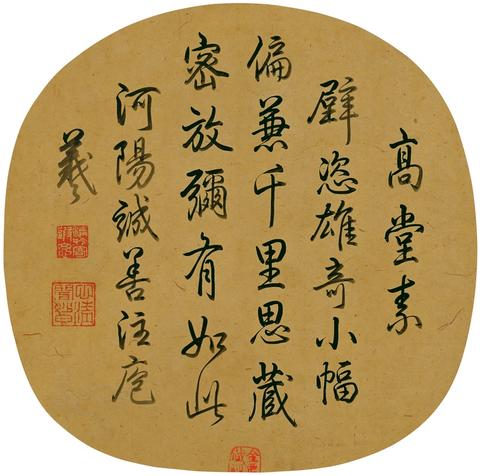 高堂素
壁恣雄奇小幅
偏兼千里思藏
密放彌有如此
河陽誠善注庖
羲